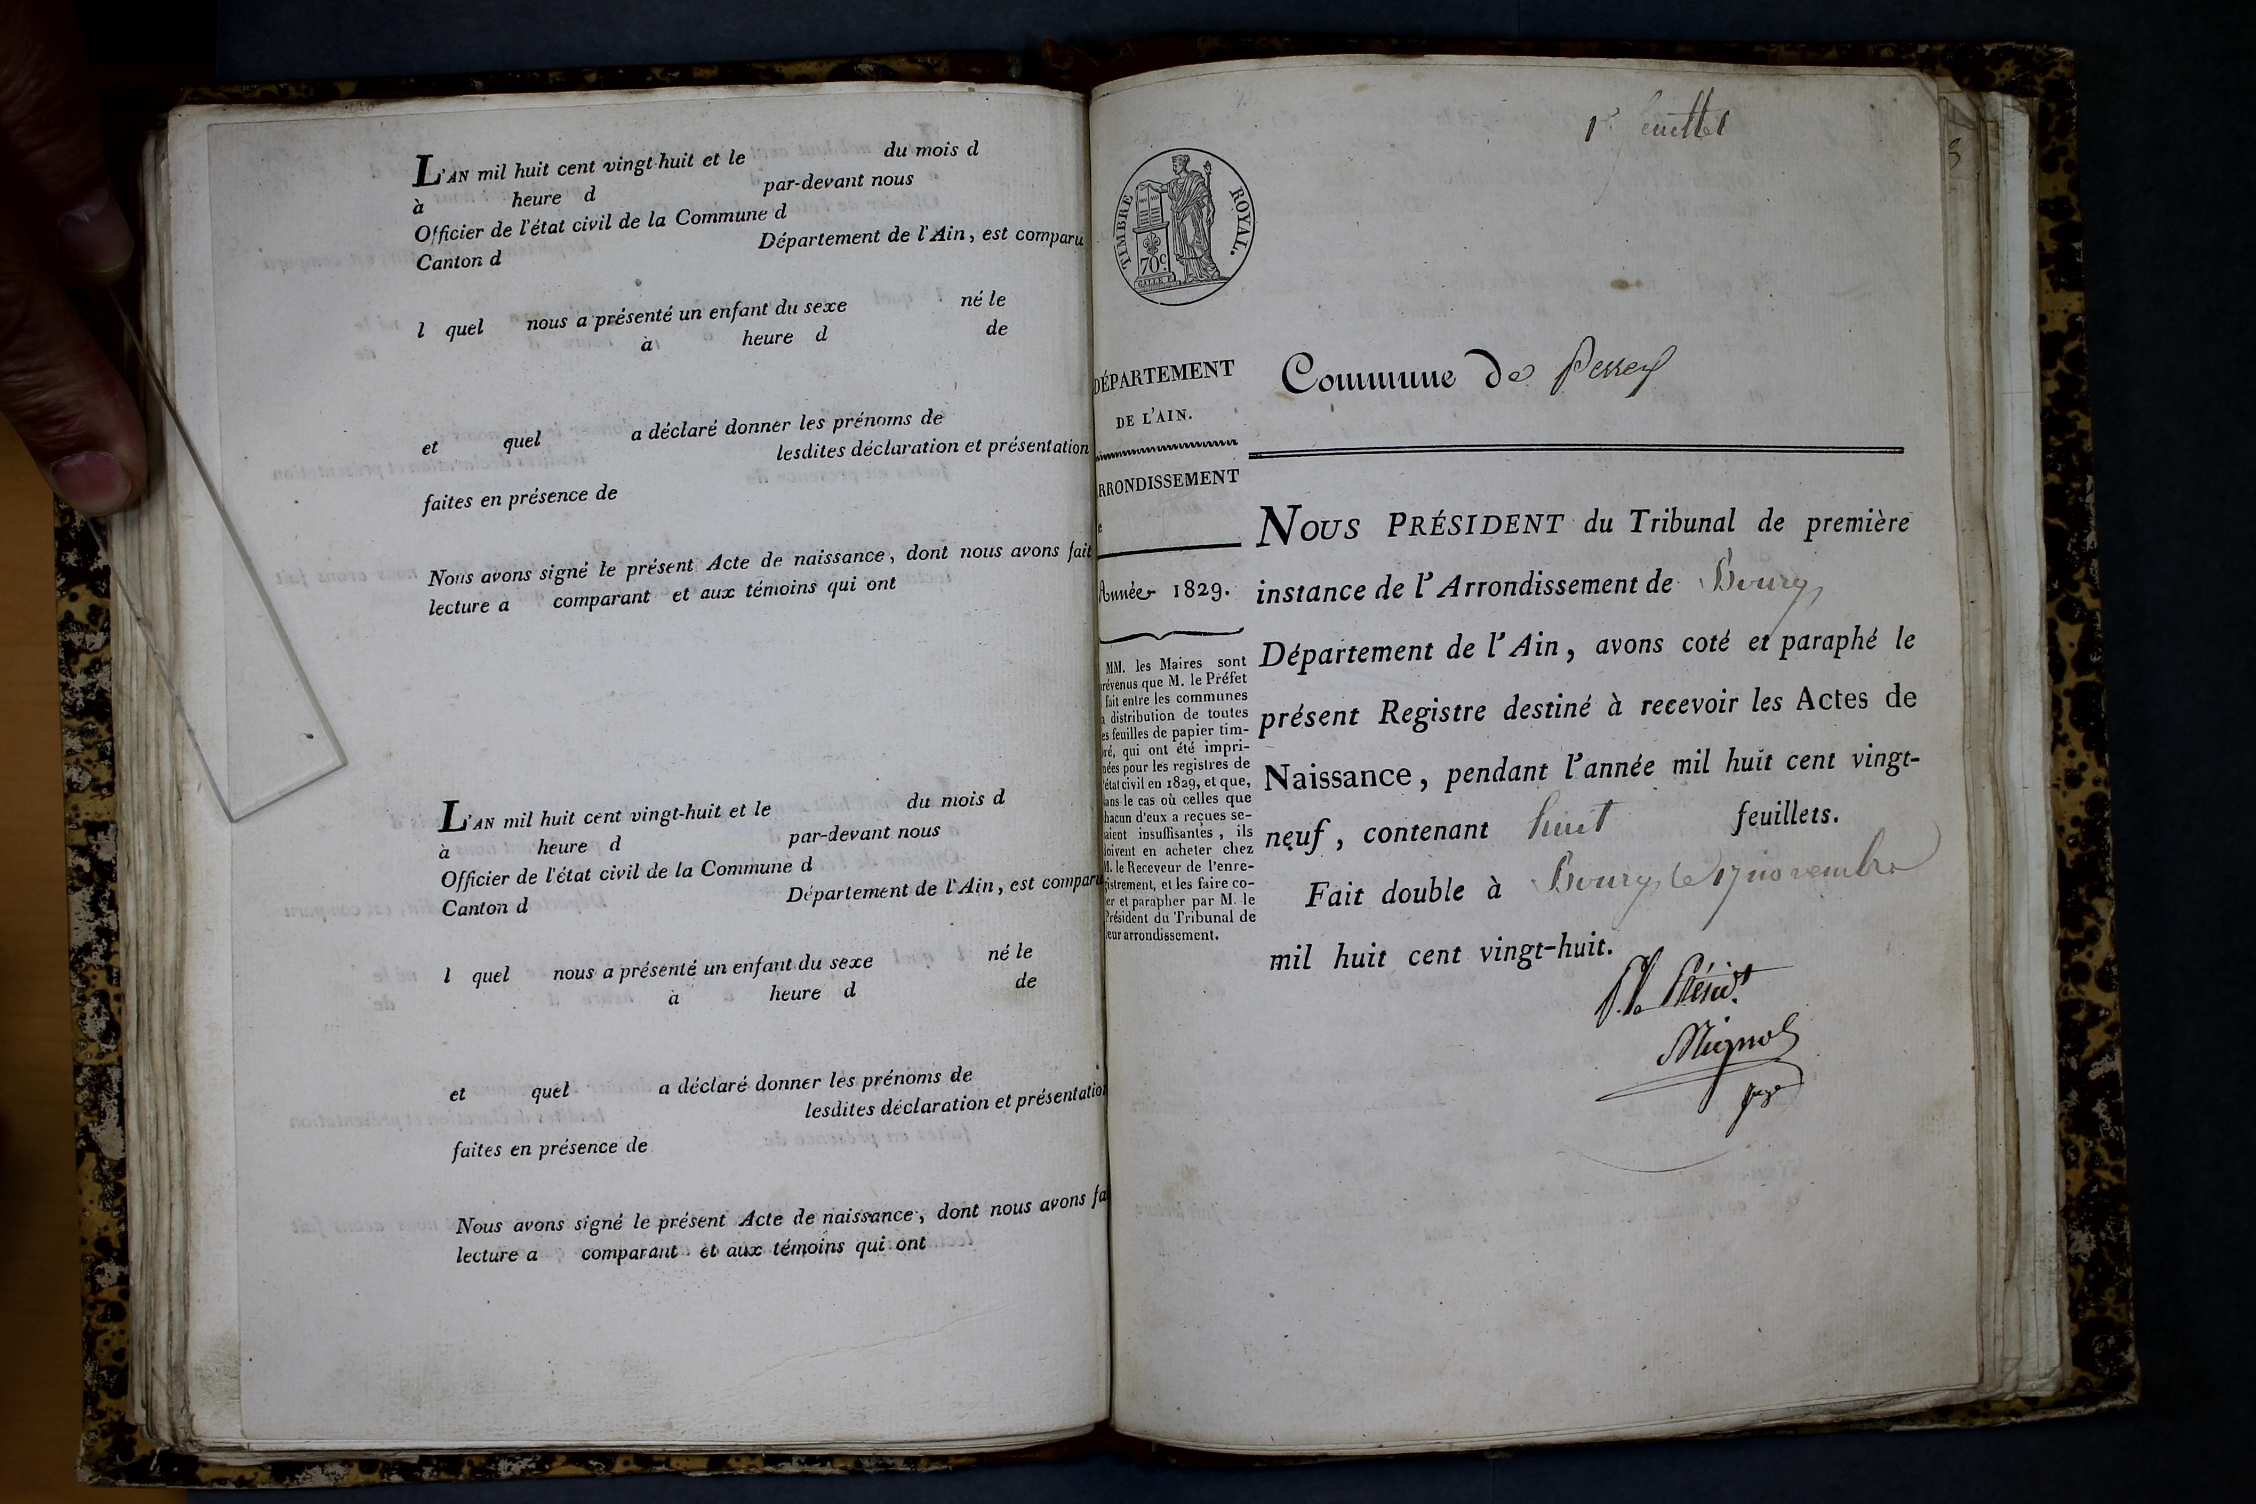 L'AN mil huit cent vingt-huit et le du mois d
à heure d par-devant nous
Officier de l'état civil de la Commune d
Canton d Département de l'Ain, est comparu
l quel nous a présenté un enfant du sexe né le
à heure d de
et quel a déclaré donner les prénoms de
lesdites déclaration et présentation
faites en présence de
Nous avons signé le présent Acte de naissance, dont nous avons fait
lecture a comparant et aux témoins qui ont
L'AN mil huit cent vingt-huit et le du mois d
à heure d par-devant nous
Officier de l'état civil de la Commune d
Canton d Département de l'Ain, est comparu
l quel nous a présenté un enfant du sexe né le
à heure d de
et quel a déclaré donner les prénoms de
lesdites déclaration et présentation
faites en présence de
Nous avons signé le présent Acte de naissance, dont nous avons fa
lecture a comparant et aux témoins qui ont
1er feuillet
TIMBRE ROYAL.
70c.
GALLE F.
DÉPARTEMENT
DE L'AIN.
RRONDISSEMENT
e
Année 1829.
MM. les Maires sont
révenus que M. le Préfet
fait entre les communes
a distribution de toutes
es feuilles de papier tim-
ré, qui ont été impri-
nées pour les registres de
'état civil en 1829, et que,
ans le cas où celles que
hacun d'eux a reçues se-
aient insuffisantes, ils
oivent en acheter chez
M. le Receveur de l'enre-
istrement, et les faire co-
er et parapher par M. le
Président du Tribunal de
eur arrondissement.
Commune de Perrex
NOUS PRÉSIDENT du Tribunal de première
instance de l'Arrondissement de Bourg
Département de l'Ain, avons coté et paraphé le
présent Registre destiné à recevoir les Actes de
Naissance, pendant l'année mil huit cent vingt-
neuf, contenant huit feuillets.
Fait double à Bourg le 17 novembre
mil huit cent vingt-huit.
P. le Présidt.
Mignot
juge